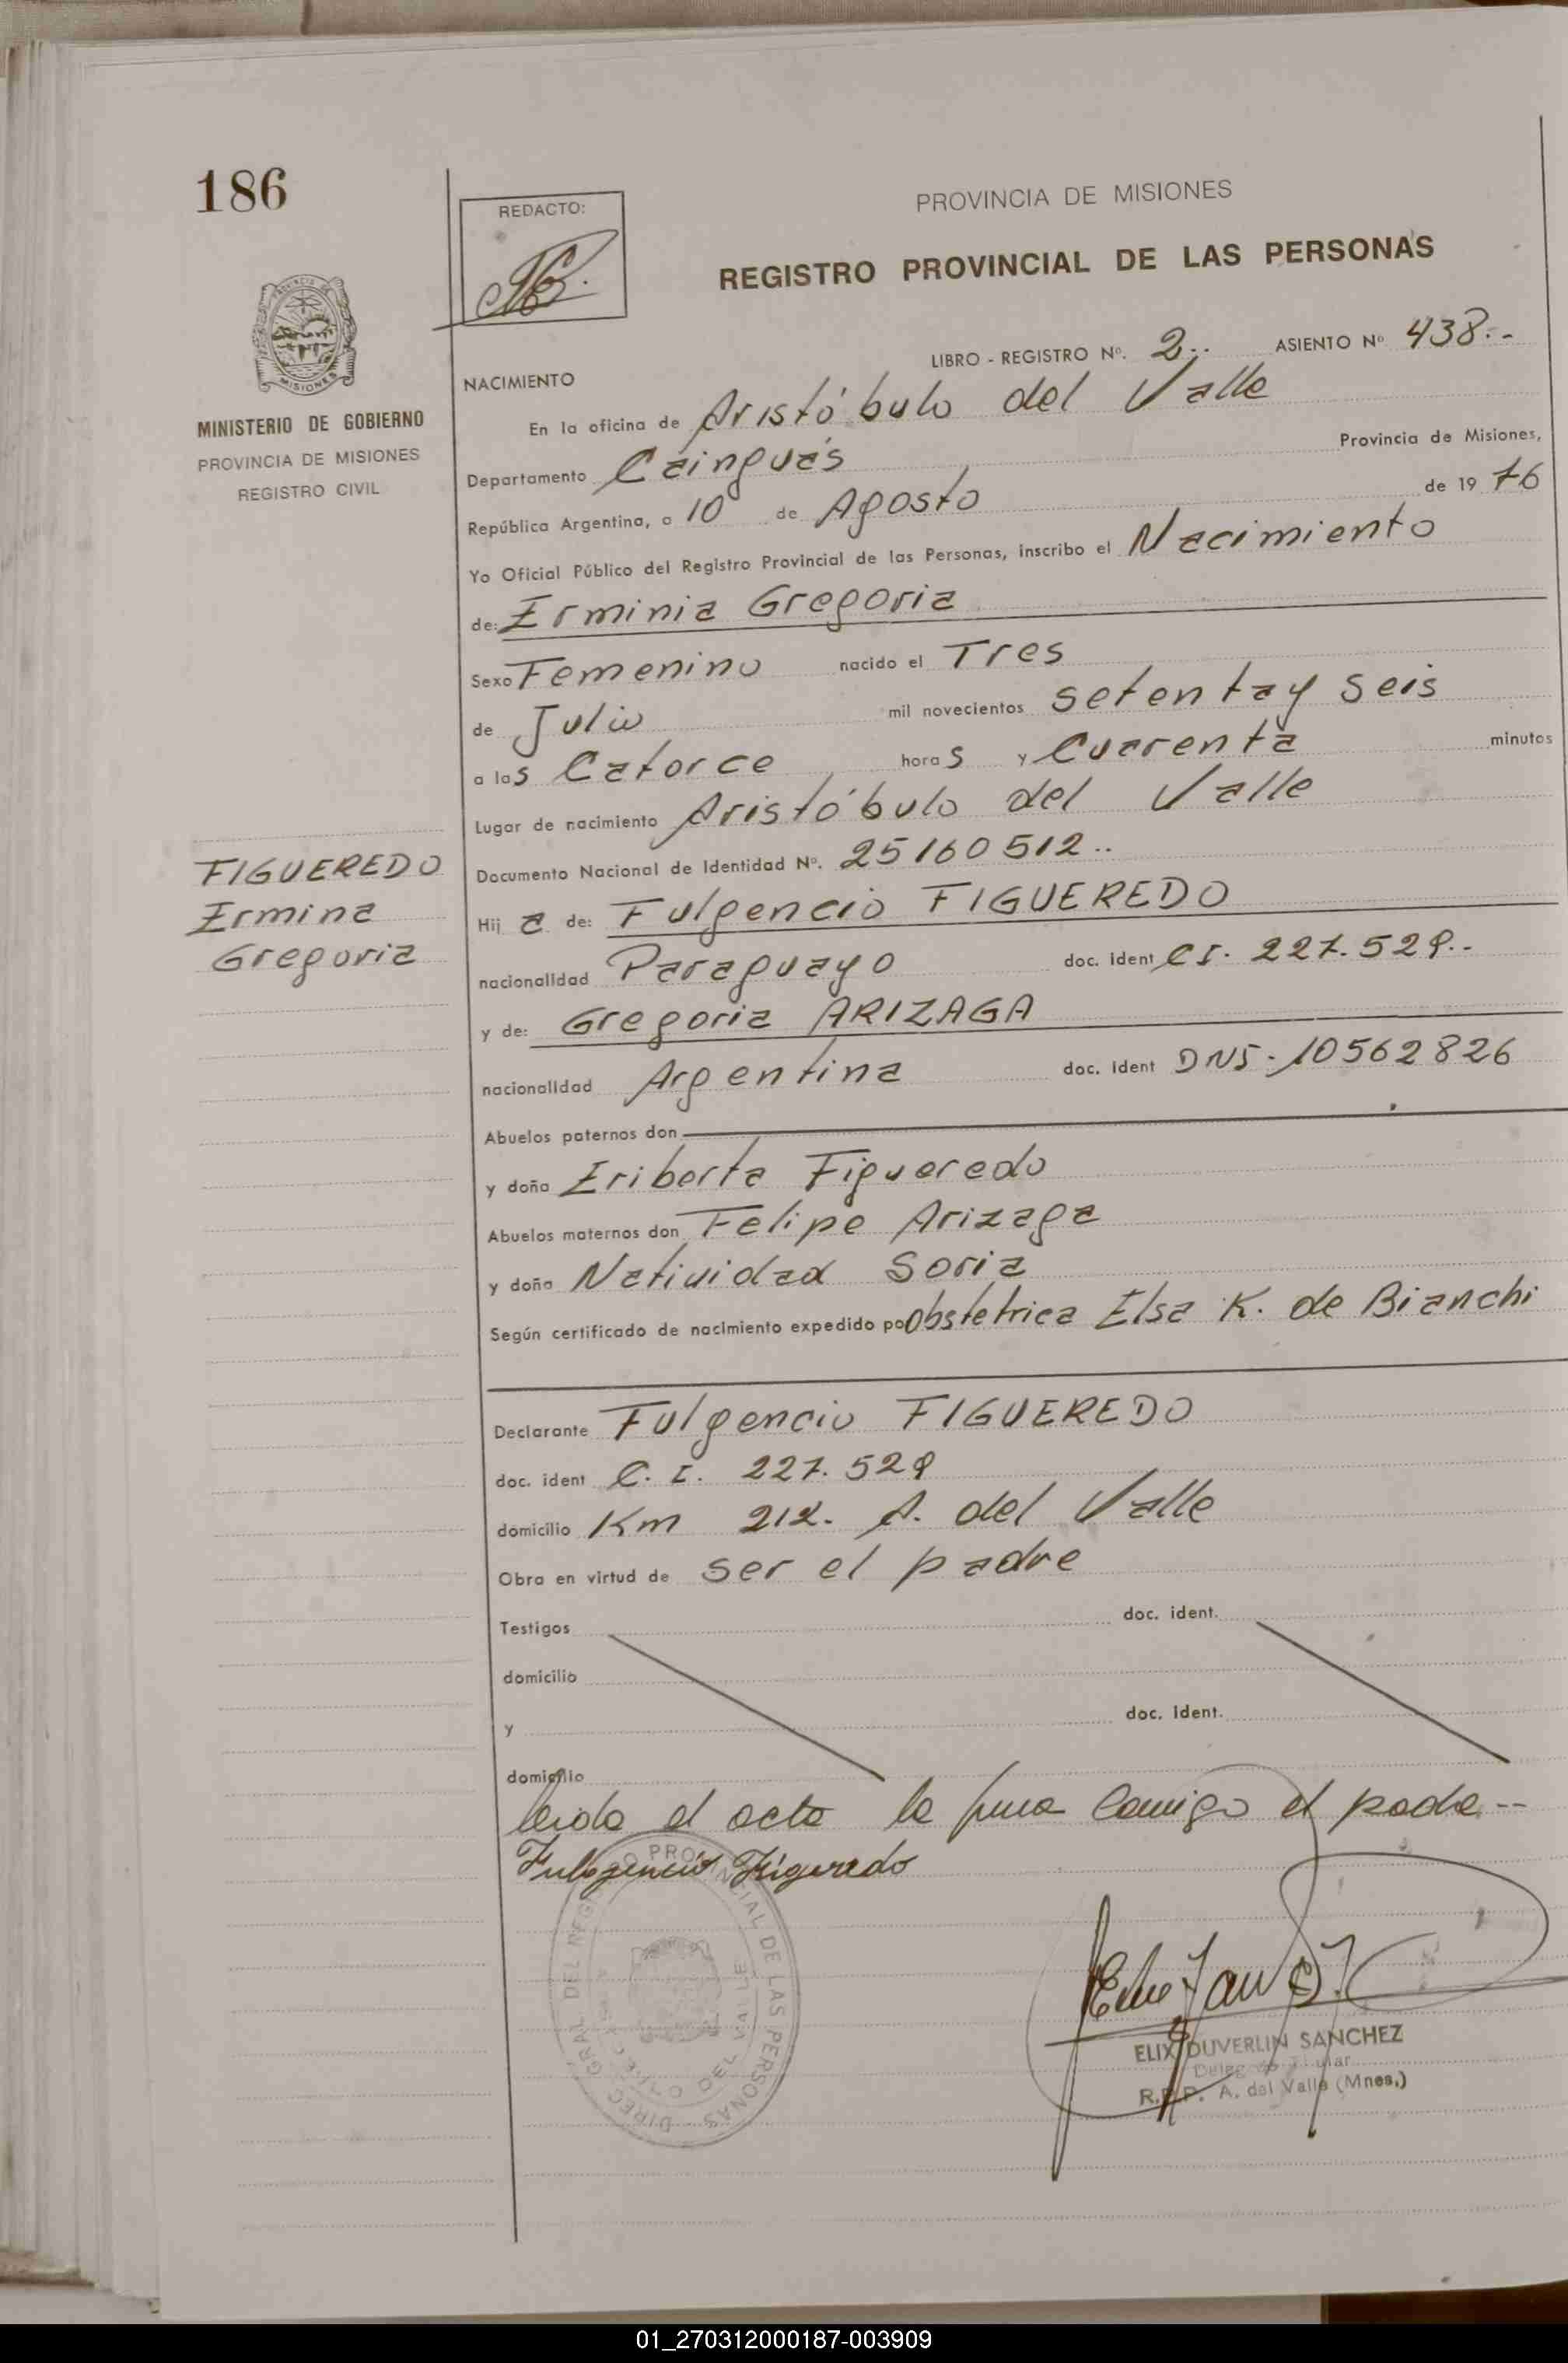 186
REDACTO:
PROVINCIA DE MISIONES
REGISTRO PROVINCIAL DE LAS PERSONAS
LIBRO - REGISTRO Nº. 2.. ASIENTO Nº 438.--
MISIONES
MINISTERIO DE GOBIERNO
PROVINCIA DE MISIONES
REGISTRO CIVIL
NACIMIENTO
En la oficina de Aristóbulo del Valle
Departamento Cainguás Provincia de Misiones,
República Argentina, a 10 de Agosto de 1976
Yo Oficial Público del Registro Provincial de las Personas, inscribo el Nacimiento
de: Erminia Gregoria
Sexo Femenino nacido el Tres
de Julio mil novecientos setenta y seis
a las Catorce horas y Cuarenta minutos
Lugar de nacimiento Aristóbulo del Valle
Documento Nacional de Identidad Nº. 25160512..
FIGUEREDO
Ermina
Gregoria
Hija de: Fulgencio FIGUEREDO
nacionalidad Paraguayo doc. ident CI. 227.529.-
y de: Gregoria ARIZAGA
nacionalidad Argentina doc. ident DNI-10562826
Abuelos paternos don
y doña Eriberta Figueredo
Abuelos maternos don Felipe Arizaga
y doña Natividad Soria
Según certificado de nacimiento expedido po obstetrica Elsa K. de Bianchi
Declarante Fulgencio FIGUEREDO
doc. ident C. I. 227.529
domicilio Km 212. A. del Valle
Obra en virtud de ser el padre
Testigos doc. ident.
domicilio
y doc. ident.
domicilio
leida el acta la firma conmigo el padre.--
Fulgencio Figueredo
DIREC. GRAL DEL REGISTRO PROVINCIAL DE LAS PERSONAS
DEL VALLE
ELIX DUVERLIN SANCHEZ
Titular
R.P.P. A. del Valle (Mnes.)
01_270312000187-003909